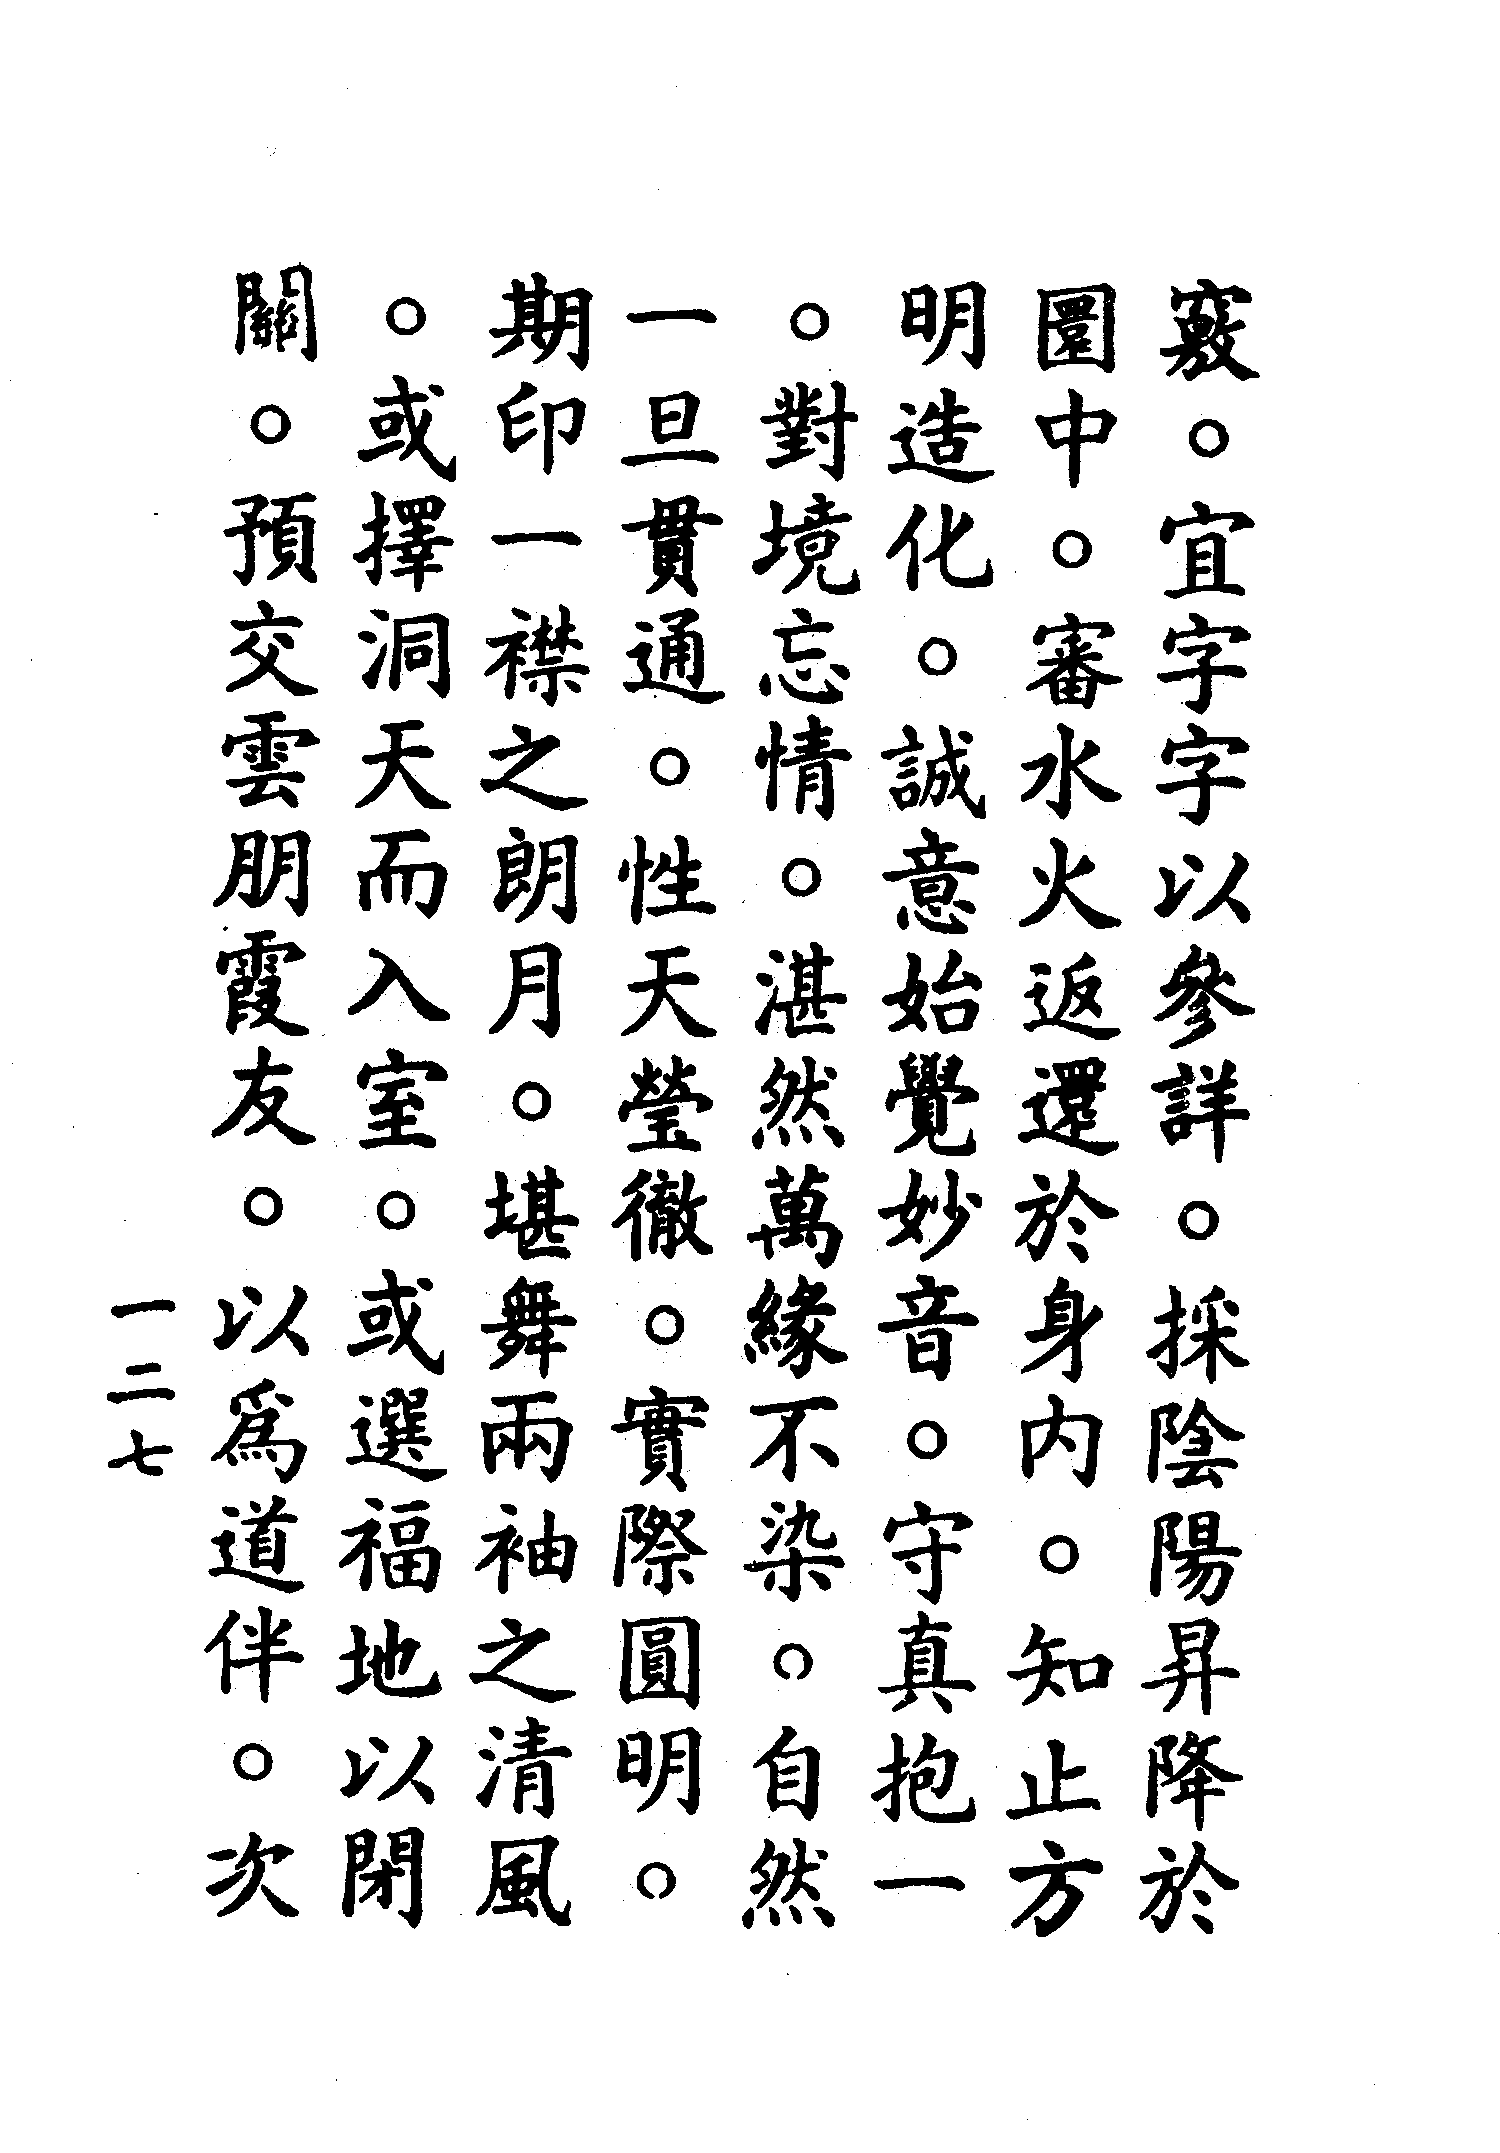 竅。宜字字以參詳。採陰陽昇降於
圜中。審水火返還於身內。知止方
明造化。誠意始覺妙音。守真抱一
。對境忘情。湛然萬緣不染。自然
一旦貫通。性天瑩徹。實際圓明。
期印一襟之朗月。堪舞兩袖之清風
。或擇洞天而入室。或選福地以閉
關。預交雲朋霞友。以爲道伴。次
一二七